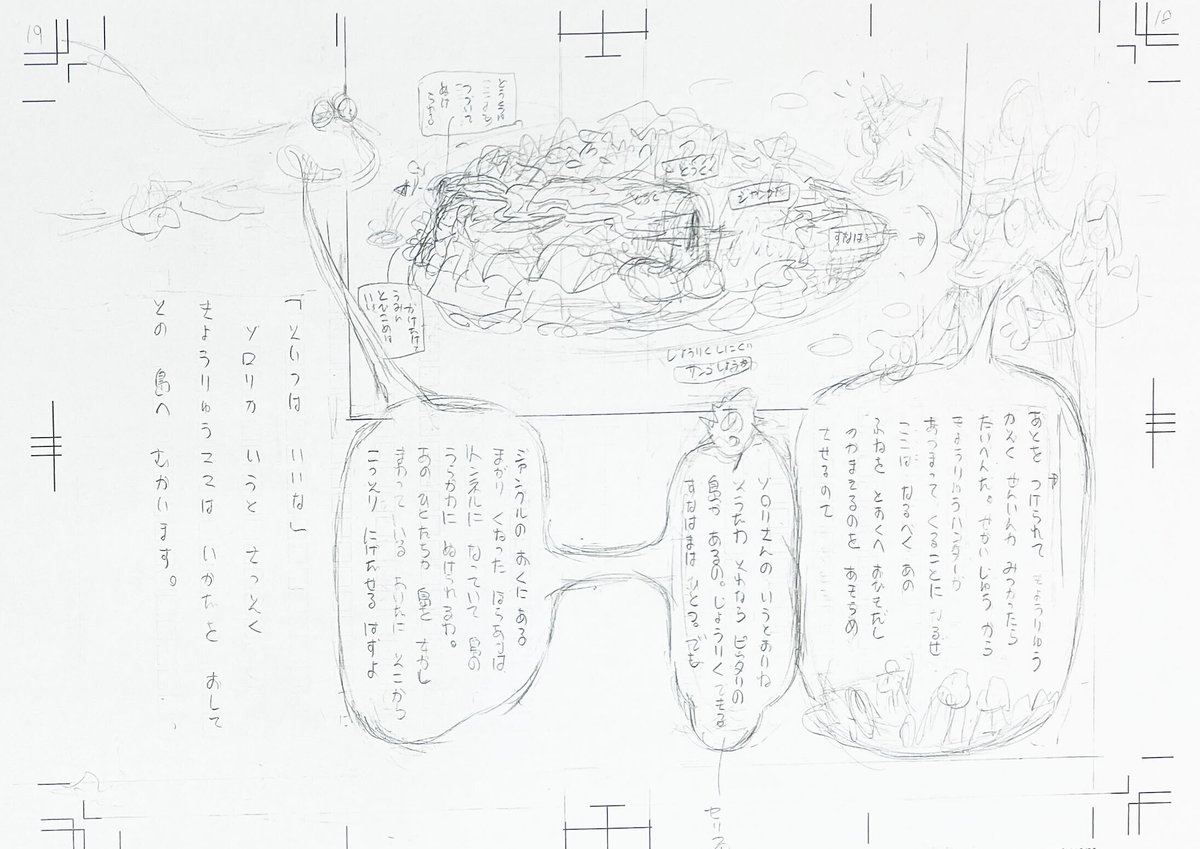 18
あとを つけられて きょうりゅう
かぞく ぜんいんが みつかったら
たいへんだ。せかいじゅう から
きょうりゅうハンターが
あつまって くることに なるぜ
ここは なるべく あの
ふねを とおくへ おびきだし
つかまえるのを あきらめ
させるのて
すなはま
ジャングル
どうくつ
じょうりくしにくい
サンゴしょう
ゾロリさんの いうとおりね
そうだわ それなら ピッタリの
島が あるの。じょうりくできる
すなはまは ひとつ。でも
セリフ
どうくつは
ここまで
つづいて
ぬけ
られる
ジャングルの おくにある
まがり くねった ほらあなは
トンネルに なっていて 島の
うらがわに ぬけられるわ。
あの ひとたちが 島を さがし
まわって いる あいだに そこから
こっそり にげだせる はずよ
19
「そいつは いいな」
ゾロリが いうと さっそく
きょうりゅうママは いかだを おして
その 島へ むかいます。